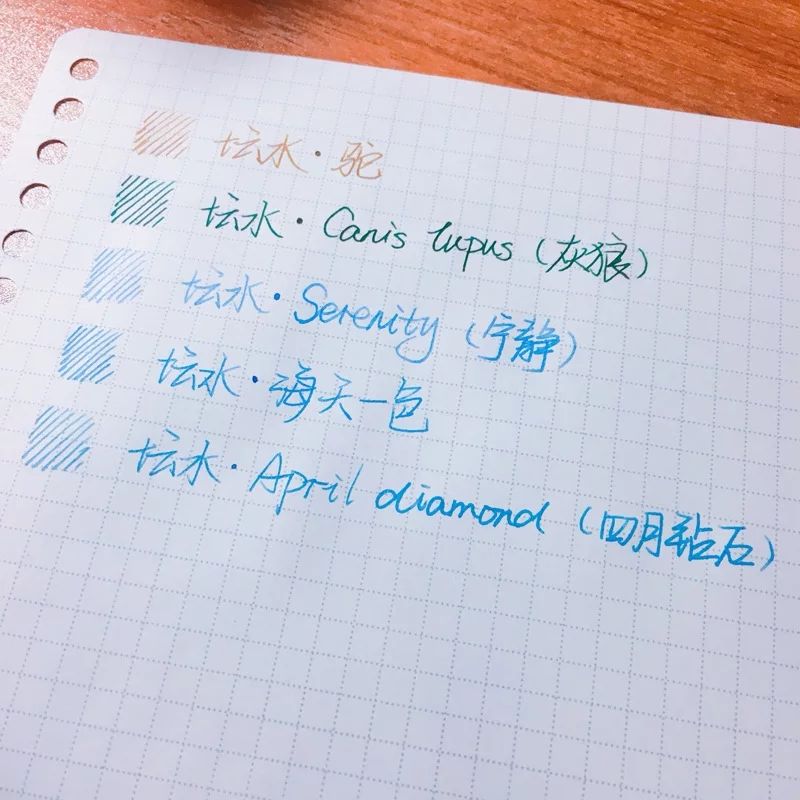 坛水·驼
坛水·Canis lupus（灰狼）
坛水·Serenity（宁静）
坛水·海天一色
坛水·April diamond（四月钻石）